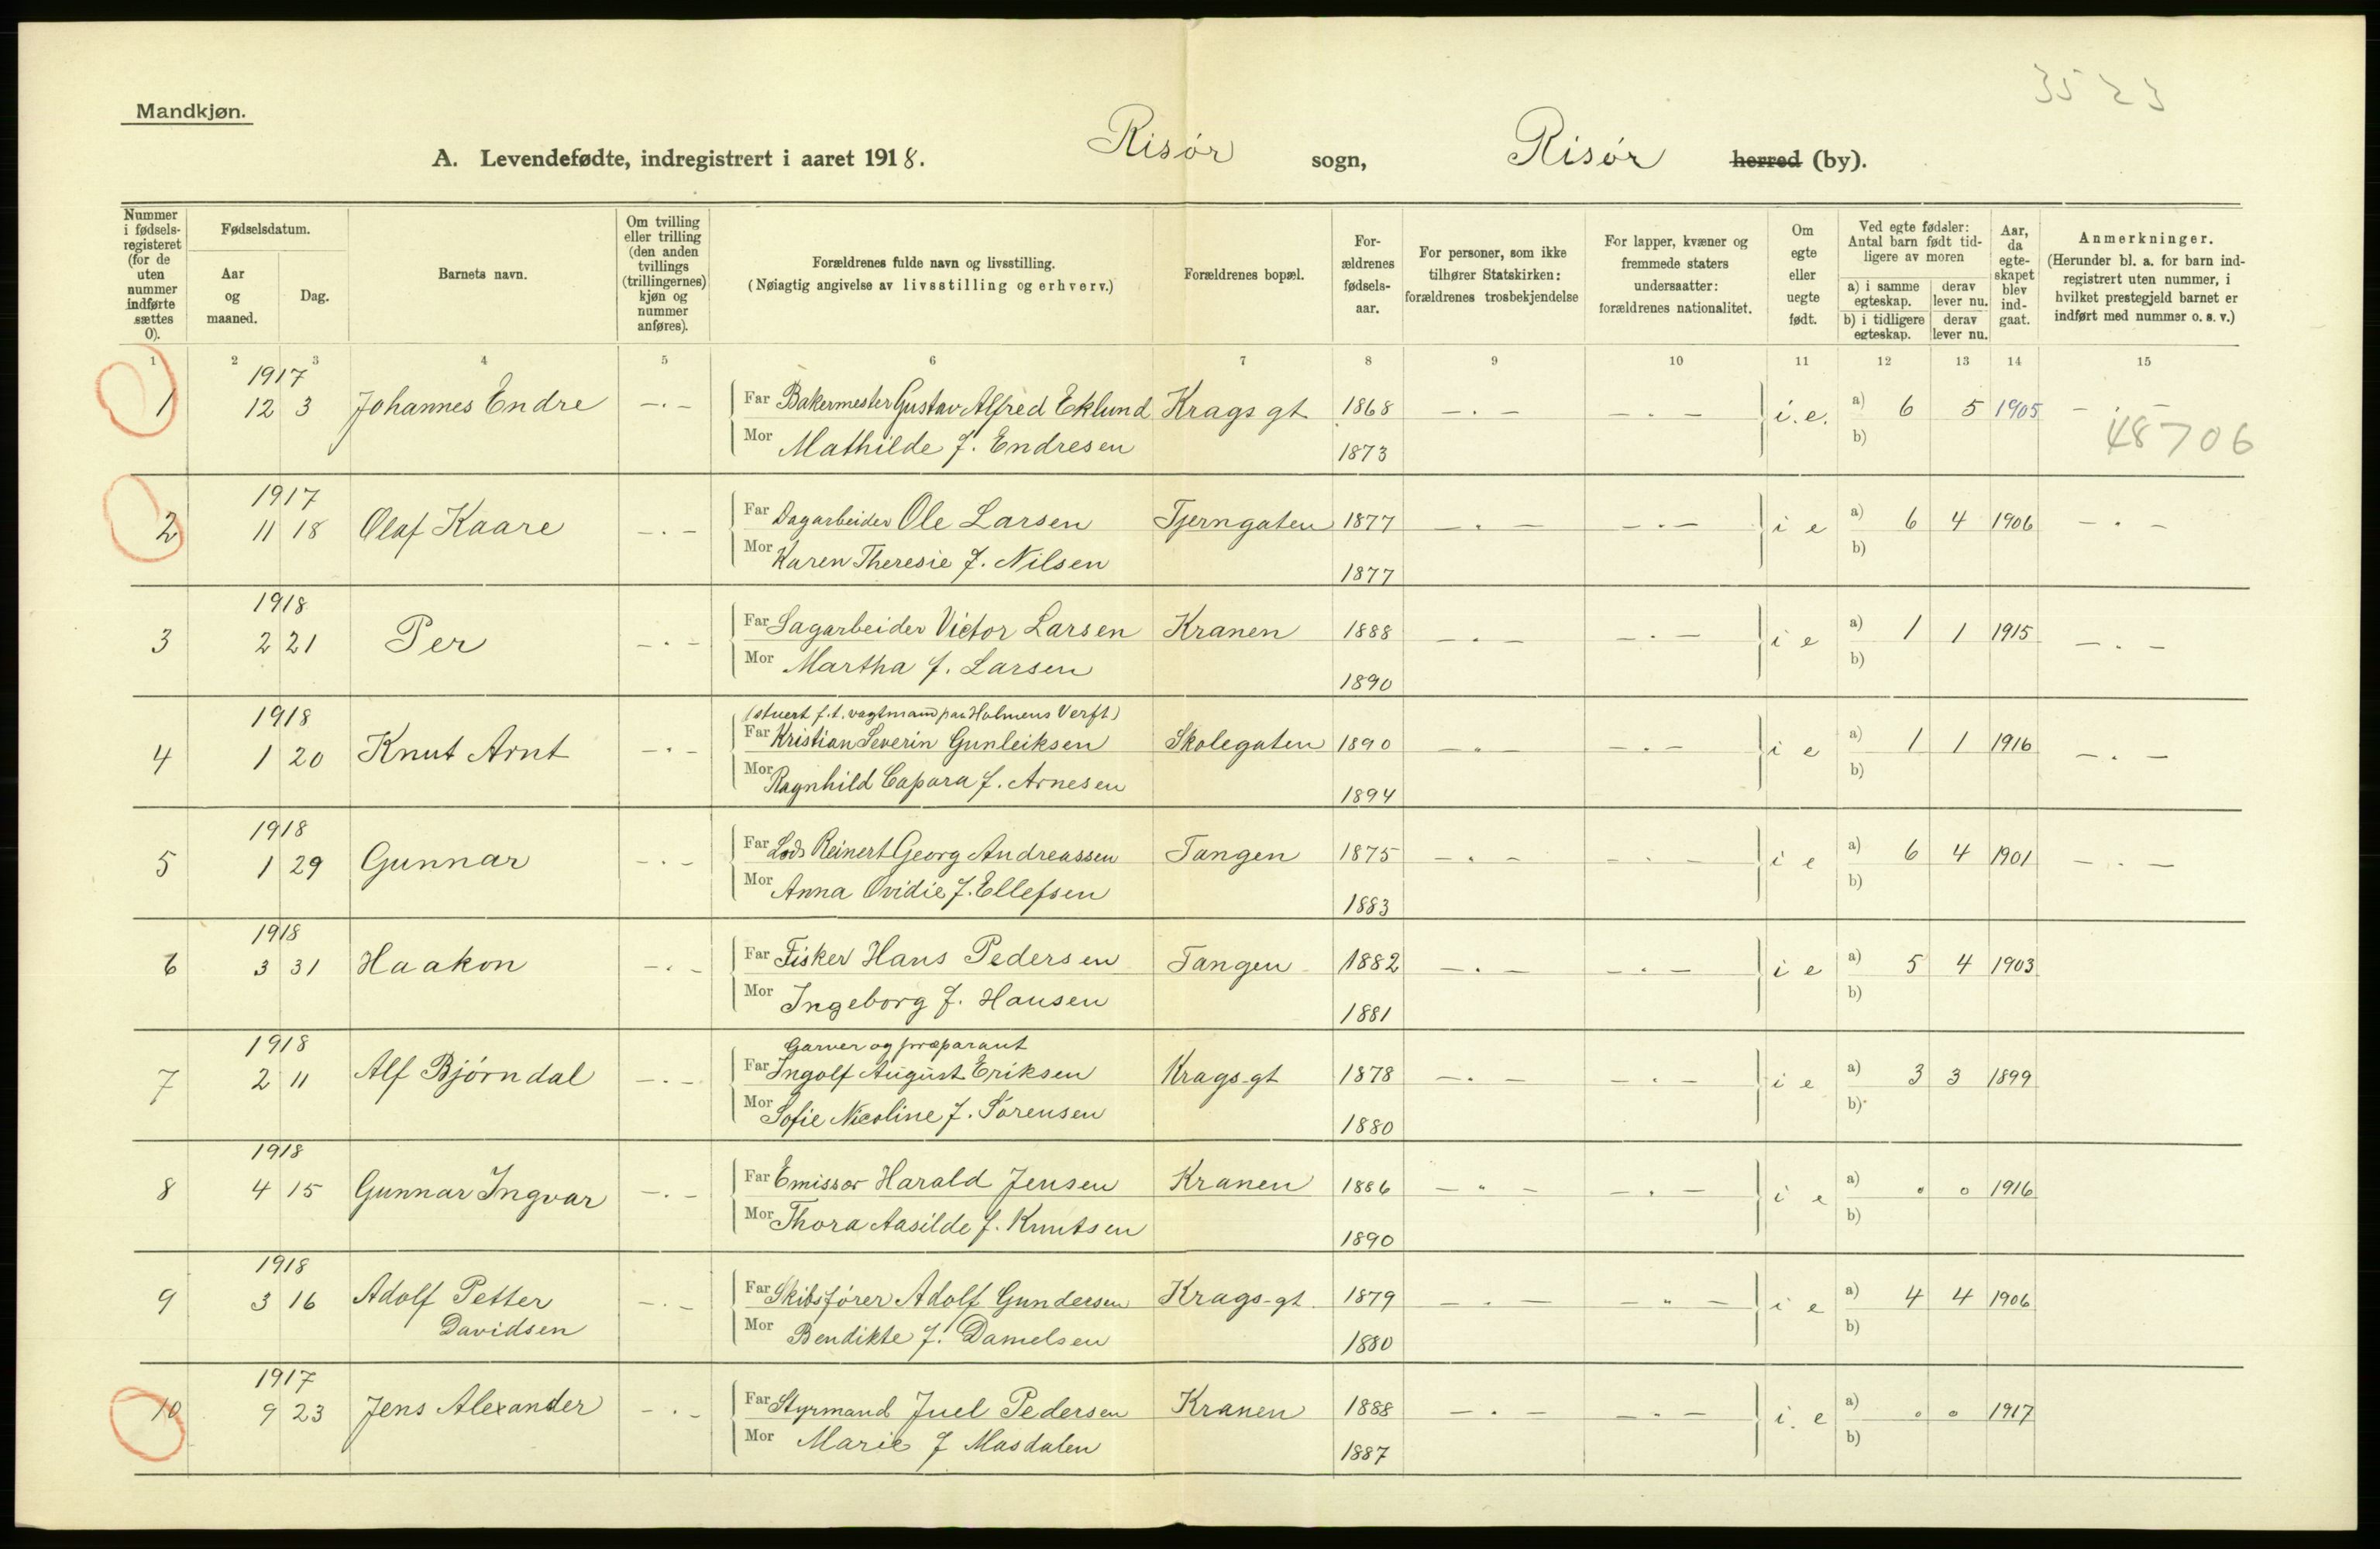 3523
Mandkjøn.
A. Levendefødte, indregistrert i aaret 1918. Risør sogn, Risør herred (by).
Nummer i fødsels-registeret (for de uten nummer indførte sættes 0).
Fødselsdatum.
Aar og maaned.
Dag.
Barnets navn.
Om tvilling eller trilling (den anden tvillings (trillingernes) kjøn og nummer anføres).
Forældrenes fulde navn og livsstilling.
(Nøiagtig angivelse av livsstilling og erhverv.)
Forældrenes bopæl.
For-ældrenes fødsels-aar.
For personer, som ikke tilhører Statskirken: forældrenes trosbekjendelse
For lapper, kvæner og fremmede staters undersaatter: forældrenes nationalitet.
Om egte eller uegte født.
Ved egte fødsler: Antal barn født tid-ligere av moren
a) i samme egteskap. derav lever nu.
b) i tidligere egteskap. derav lever nu.
Aar, da egte-skapet blev ind-gaat.
Anmerkninger.
(Herunder bl. a. for barn ind-registrert uten nummer, i hvilket prestegjeld barnet er indført med nummer o. s. v.)
1 2 3 4 5 6 7 8 9 10 11 12 13 14 15
1917
1 12 3 Johannes Endre —·— Far Bakermester Gustav Alfred Eklund Krags gt 1868 —·— —·— i. e. a) 6 5 1905 —·—
Mor Mathilde f. Endresen 1873 b) 48706
1917
2 11 18 Olaf Kaare —·— Far Dagarbeider Ole Larsen Tjerngaten 1877 —·— —·— i e a) 6 4 1906 —·—
Mor Karen Theresie f. Nilsen 1877 b)
1918
3 2 21 Per —·— Far Sagarbeider Victor Larsen Kranen 1888 —·— —·— i e a) 1 1 1915 —·—
Mor Martha f. Larsen 1890 b)
1918 (stuert f.t. vagtmand paa Holmens Verft)
4 1 20 Knut Arnt —·— Far Kristian Severin Gunleiksen Skolegaten 1890 —·— —·— i e a) 1 1 1916 —·—
Mor Ragnhild Capara f. Arnesen 1894 b)
1918
5 1 29 Gunnar —·— Far Lods Reinert Georg Andreassen Tangen 1875 —·— —·— i e a) 6 4 1901 —·—
Mor Anna Ovidie f. Ellefsen 1883 b)
1918
6 3 31 Haakon —·— Far Fisker Hans Pedersen Tangen 1882 —·— —·— i e a) 5 4 1903
Mor Ingeborg f. Hansen 1881 b)
1918 Garver og præparant
7 2 11 Alf Bjørndal —·— Far Ingolf August Eriksen Krags-gt 1878 —·— —·— i e a) 3 3 1899
Mor Sofie Nicoline f. Sørensen 1880 b)
1918
8 4 15 Gunnar Ingvar —·— Far Emissær Harald Jensen Kranen 1886 —"— —·— i e a) 0 0 1916
Mor Thora Aasilde f. Knutsen 1890 b)
1918
9 3 16 Adolf Petter —·— Far Skibsfører Adolf Gundersen Krags-gt. 1879 —·— —"— i e a) 4 4 1906
Davidsen Mor Bendikte f. Danielsen 1880 b)
1917
10 9 23 Jens Alexander —·— Far Styrmand Juel Pedersen Kranen 1888 —·— —·— i. e a) 0 0 1917
Mor Marie f Masdalen 1887 b)